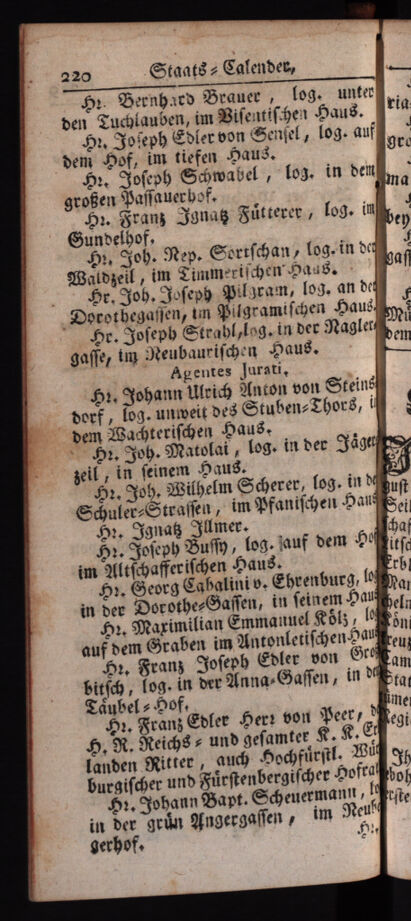 220 Staats-Calender,
Hr. Bernhard Brauer, log. unter
den Tuchlauben, im Visentischen Haus.
Hr. Joseph Edler von Sensel, log. auf
dem Hof, im tiefen Haus.
Hr. Joseph Schwabel, log. in dem
großen Passauerhof.
Hr. Franz Ignatz Fütterer, log. im
Gundelhof.
Hr. Joh. Nep. Sortschan, log. in der
Waldzeil, im Timmerischen Haus.
Hr. Joh. Joseph Pilgram, log. an der
Dorothegassen, im Pilgramischen Haus.
Hr. Joseph Strahl, log. in der Nagler-
gasse, im Neubaurischen Haus.
Agentes Jurati.
Hr. Johann Ulrich Anton von Steins
dorf, log. unweit des Stuben-Thors, i
dem Wachterischen Haus.
Hr. Joh. Matolai, log. in der Jäger
zeil, in seinem Haus.
Hr. Joh. Wilhelm Scherer, log. in de
Schuler-Strassen, im Pfanischen Haus
Hr. Ignatz Illmer.
Hr. Joseph Bussy, log. auf dem Hof
im Altschafferischen Haus.
Hr. Georg Cabalini v. Ehrenburg, log
in der Dorothe-Gassen, in seinem Haus
Hr. Maximilian Emmanuel Kölz, lo
auf dem Graben im Antonletischen Hau
Hr. Franz Joseph Edler von Gro
bitsch, log. in der Anna-Gassen, in de
Täubel-Hof.
Hr. Franz Edler Herr von Peer, d
H. R. Reichs- und gesamter K. K. Er
landen Ritter, auch Hochfürstl. Wür
burgischer und Fürstenbergischer Hofra
Hr. Johann Bapt. Scheuermann, lo
in der grün Angergassen, im Neub
gerhof. Hr.